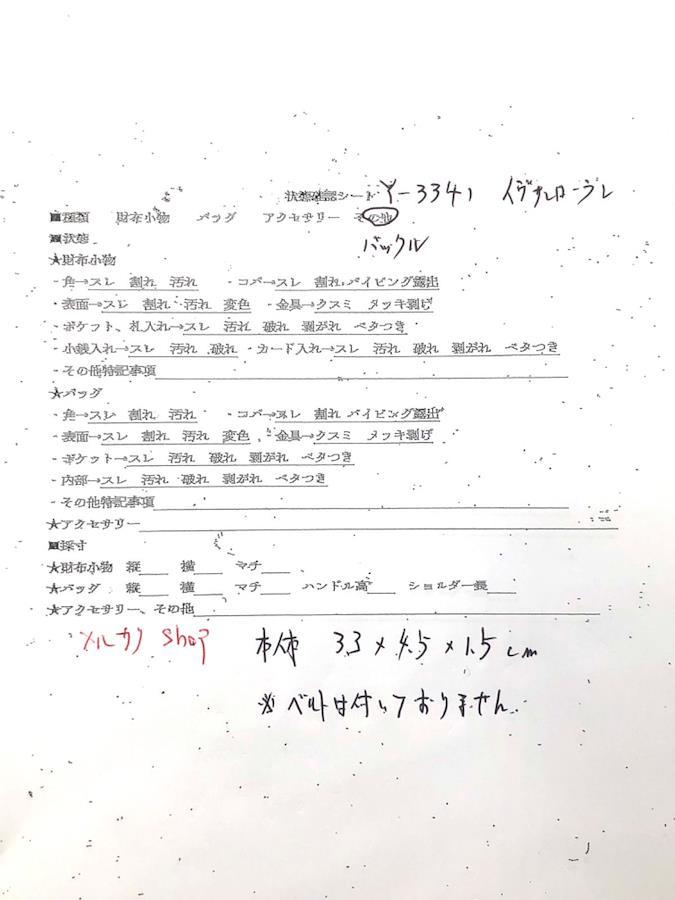 状態確認シート Y-3341 イヴサンローラン
■種類 財布小物 バッグ アクセサリー その他
■状態 バックル
★財布小物
・角→スレ 割れ 汚れ ・コバ→スレ 割れ パイピング露出
・表面→スレ 割れ 汚れ 変色 ・金具→クスミ メッキ剥げ
・ポケット、札入れ→スレ 汚れ 破れ 剥がれ ベタつき
・小銭入れ→スレ 汚れ 破れ ・カード入れ→スレ 汚れ 破れ 剥がれ ベタつき
・その他特記事項
★バッグ
・角→スレ 割れ 汚れ ・コバ→スレ 割れ パイピング露出
・表面→スレ 割れ 汚れ 変色 ・金具→クスミ メッキ剥げ
・ポケット→スレ 汚れ 破れ 剥がれ ベタつき
・内部→スレ 汚れ 破れ 剥がれ ベタつき
・その他特記事項
★アクセサリー
■採寸
★財布小物 縦 横 マチ
★バッグ 縦 横 マチ ハンドル高 ショルダー長
★アクセサリー、その他
メルカリ shop 本体 3.3×4.5×1.5cm
※ベルトは付いておりません.